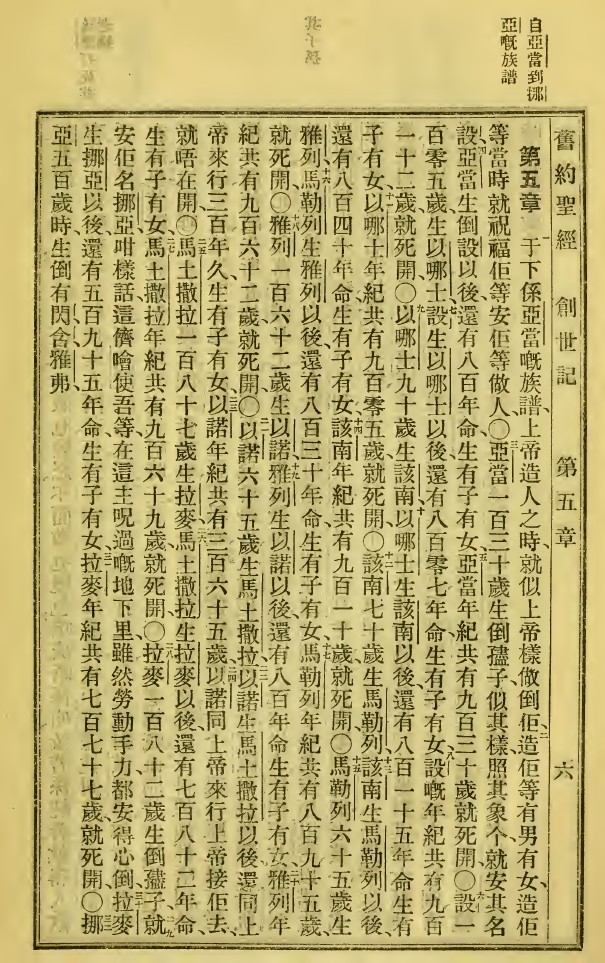 自亞當到挪
亞嘅族譜
舊約聖經 創世記 第五章 六
第五章 于下係亞當嘅族譜上帝造人之時就似上帝樣做倒佢造佢等有男有女造佢
等當時就祝福佢等安佢等做人〇亞當一百三十歲生倒孻子似其樣照其象个就安其名
設亞當生倒設以後還有八百年命生有子有女亞當年紀共有九百三十歲就死開〇設一
百零五歲生以哪士設生以哪士以後還有八百零七年命生有子有女設嘅年紀共有九百
一十二歲就死開〇以哪士九十歲生該南以哪士生該南以後還有八百一十五年命生有
子有女以哪士年紀共有九百零五歲就死開〇該南七十歲生馬勒列該南生馬勒列以後
還有八百四十年命生有子有女該南年紀共有九百一十歲就死開〇馬勒列六十五歲生
雅列馬勒列生雅列以後還有八百三十年命生有子有女馬勒列年紀共有八百九十五歲
就死開〇雅列一百六十二歲生以諾雅列生以諾以後還有八百年命生有子有女雅列年
紀共有九百六十二歲就死開〇以諾六十五歲生馬土撒拉以諾生馬土撒拉以後還同上
帝來行三百年久生有子有女以諾年紀共有三百六十五歲以諾同上帝來行上帝接佢去
就唔在開〇馬土撒拉一百八十七歲生拉麥馬土撒拉生拉麥以後還有七百八十二年命
生有子有女馬土撒拉年紀共有九百六十九歲就死開〇拉麥一百八十二歲生倒孻子就
安佢名挪亞咁樣話這儕噲使吾等在這主呪過嘅地下里雖然勞動手力都安得心倒拉麥
生挪亞以後還有五百九十五年命生有子有女拉麥年紀共有七百七十七歲就死開〇挪
亞五百歲時生倒有閃含雅弗